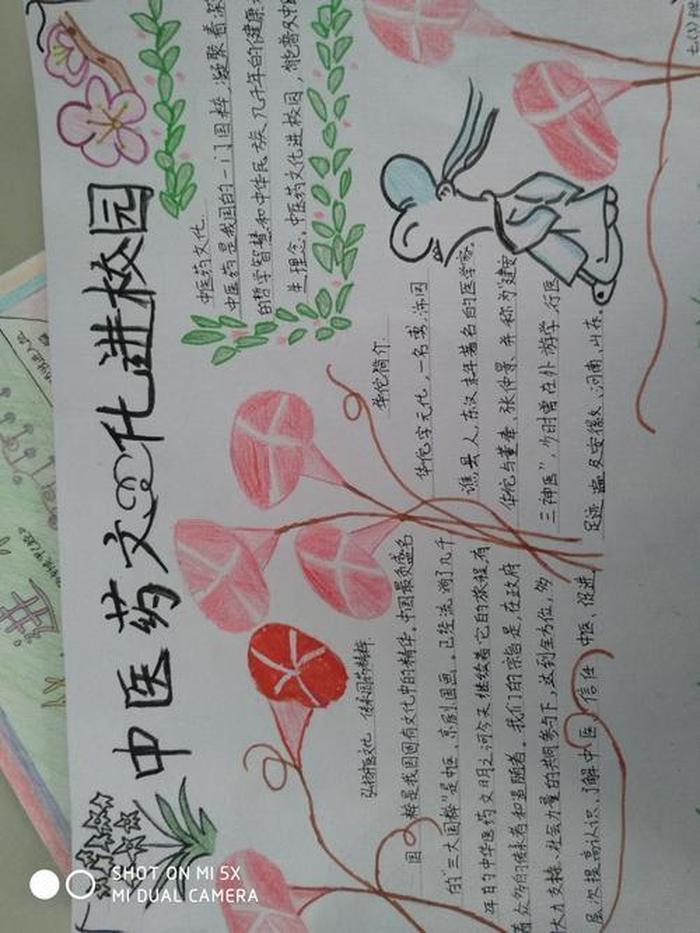 中医药文化进校园
中医药文化
中医药是我国的一门国粹,凝聚着深
的哲学智慧和中华民族几千年的健康
生理念。中医药文化进校园,能普及中
华佗简介
华佗字元化,一名旉,沛国
谯县人,东汉末年著名的医学家。
华佗与董奉、张仲景、并称为“建安
三神医”,少时曾在外游学,行医
足迹遍及安徽、河南、山东。
弘扬中医文化 传承国药精粹
国粹是我国固有文化中的精华。中国最负盛名
的“三大国粹”是中医、京剧、国画。已经流淌了几千
年的中华医药文明之河今天继续着它的旅程,有
着众多的传承者和追随者。我们的宗旨是,在政府
大力支持、社会力量的共同参与下,达到全方位,多
层次提高认识、了解中医、信任中医、促进
SHOT ON MI 5X
MI DUAL CAMERA